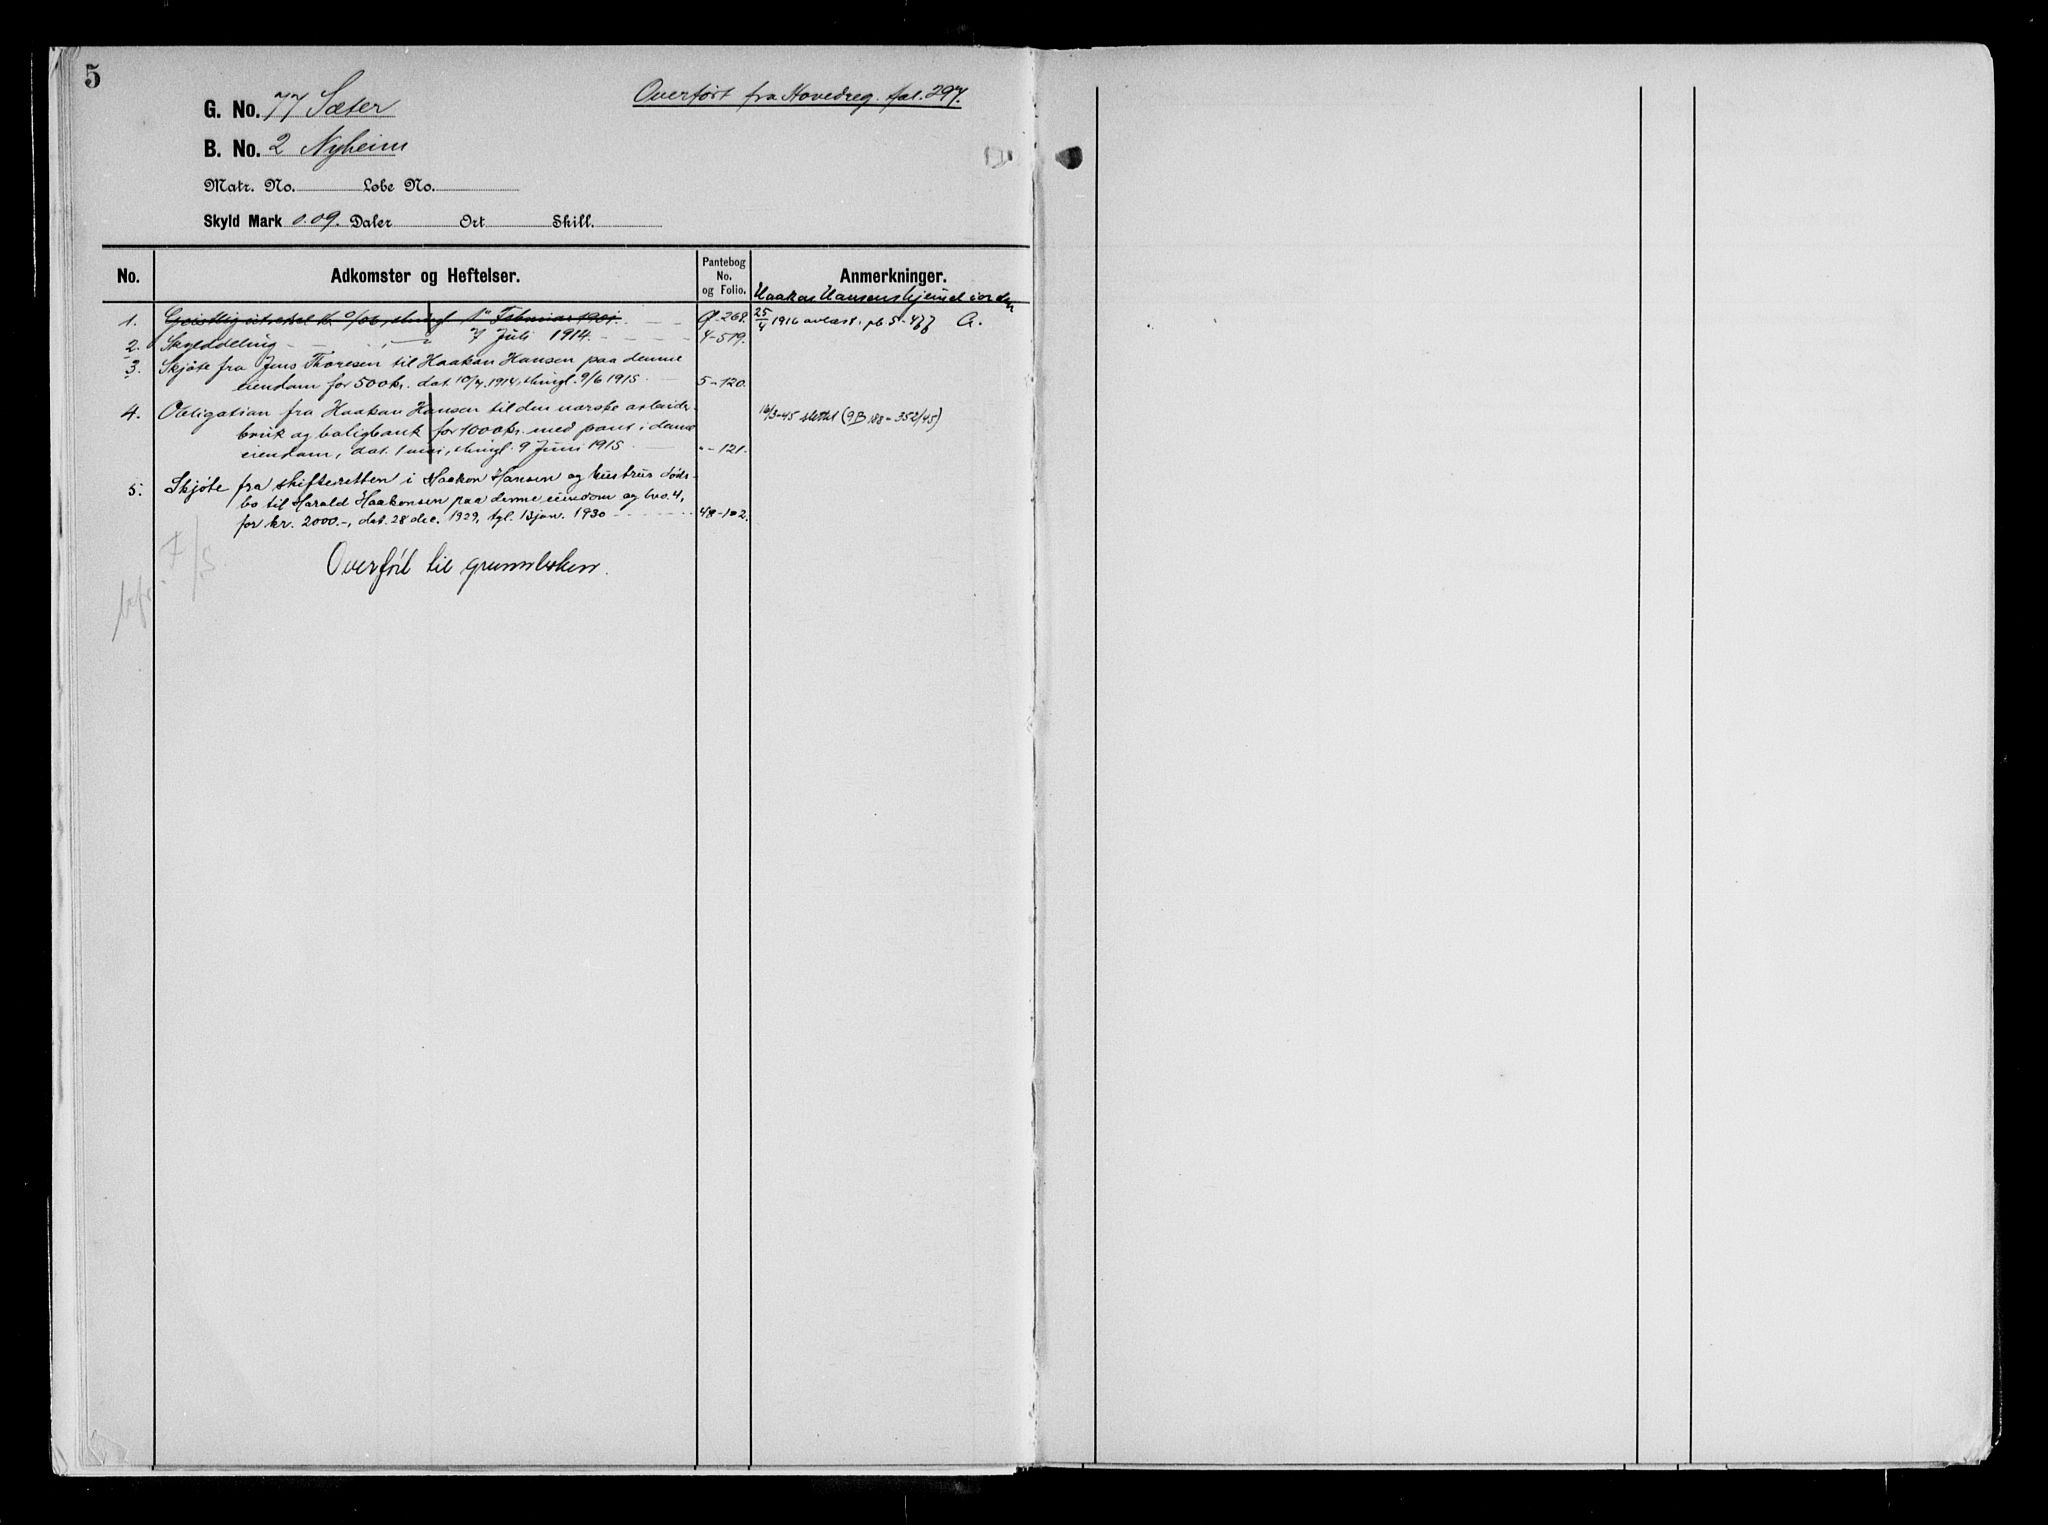 5
Overført fra Hovedreg. fol. 297.
G. No. 77 Sæter
B. No. 2 Nyheim
Matr. No. Løbe No.
Skyld Mark 0.09. Daler Ort Skill.
No. Adkomster og Heftelser. Pantebog No. og Folio. Anmerkninger.
Haakon Hansens hjemmel
1. 1 Februar 1901. 268. 25/4 1916 avlæst i pb 5-477 A.
2. Skylddeling - " - 7 Juli 1914. 4-519.
3. Skjøte fra Jens Thoresen til Haakon Hansen paa denne
eiendom for 500 kr. dat. 10/7. 1914, thingl. 9/6 1915 5-120.
4. Obligation fra Haakon Hansen til den norske arbeider-
bruk og boligbank for 1000 kr. med pant i denne
eiendom, dat. 1 mai, thingl. 9 Juni 1915 "-121.
16/3-45 slettet (9B 188-352/45)
5. Skjøte fra skifteretten i Haakon Hansen og hustrus døds-
bo til Harald Haakonsen paa denne eiendom og bno. 4,
for kr. 2000.-, dat. 28 dec. 1929, tgl. 13 jan. 1930 48-102.
Overført til grunnboken.